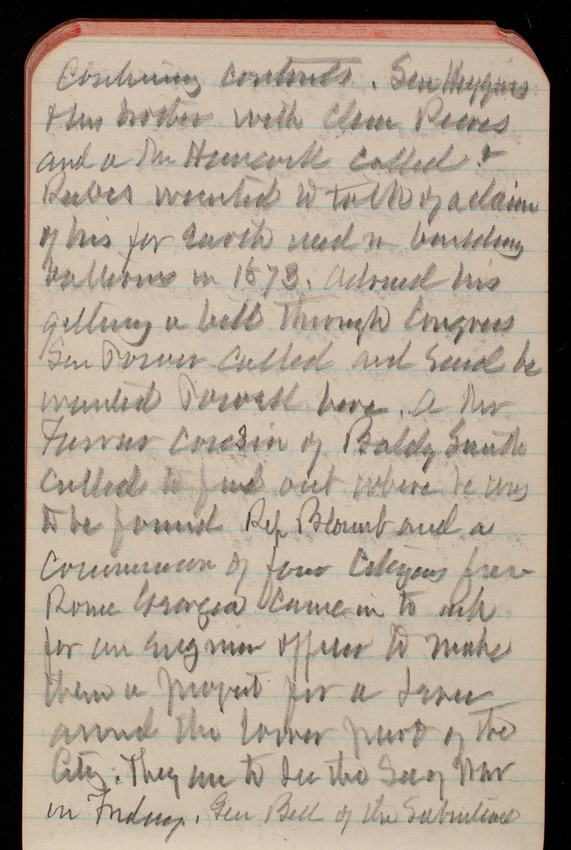 contents. Sen Higgins
& his brother with Clem Reeves
and a Mr Hancock called &
Reeves wanted to talk of a claim
of his for Earth used in building
in 1873. Advised his
getting a bill through Congress
Gen Power called and said he
wanted Powell here. A Mr
Turner cousin of Baldy Smith
called to find out where he was
to be found Rep Blount and a
of four Citizens from
Rome Georgia came in to ask
for an Engineer officer to make
them a project for a Levee
around the lower part of the
City. They are to see the Sec of War
on Friday. Gen Bell of the Subsistence